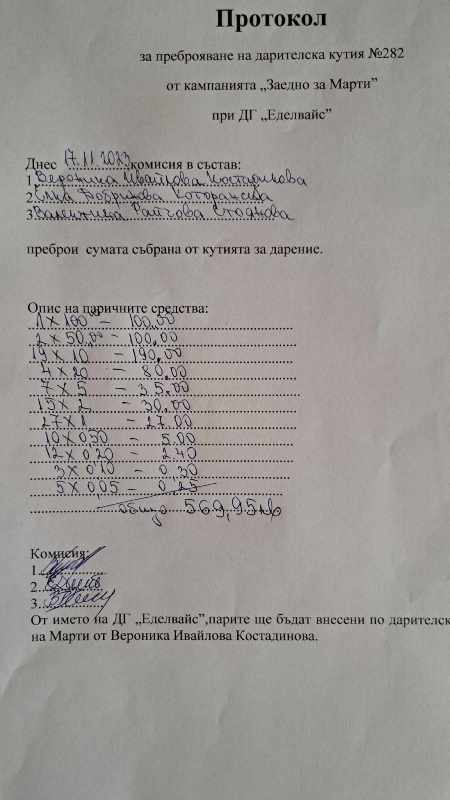 Протокол
за преброяване на дарителска кутия №282
от кампанията „Заедно за Марти”
при ДГ „Еделвайс”
Днес 17.11.2023 комисия в състав:
1 Вероника Ивайлова Костадинова
2 Елка
3 Валентина Стоянова
преброи сумата събрана от кутията за дарение.
Опис на паричните средства:
1 x 100 – 100,00
2 x 50,00 – 100,00
19 x 10 – 190,00
4 x 20 – 80,00
7 x 5 – 35.00
15 x 2 – 30.00
27 x 1 – 27.00
10 x 0,50 – 5.00
12 x 0,20 – 2.40
3 x 0,10 – 0,30
5 x 0,05 – 0,25
общо 569,95 лв
Комисия:
1
2
3
От името на ДГ „Еделвайс”,парите ще бъдат внесени по дарителск
на Марти от Вероника Ивайлова Костадинова.